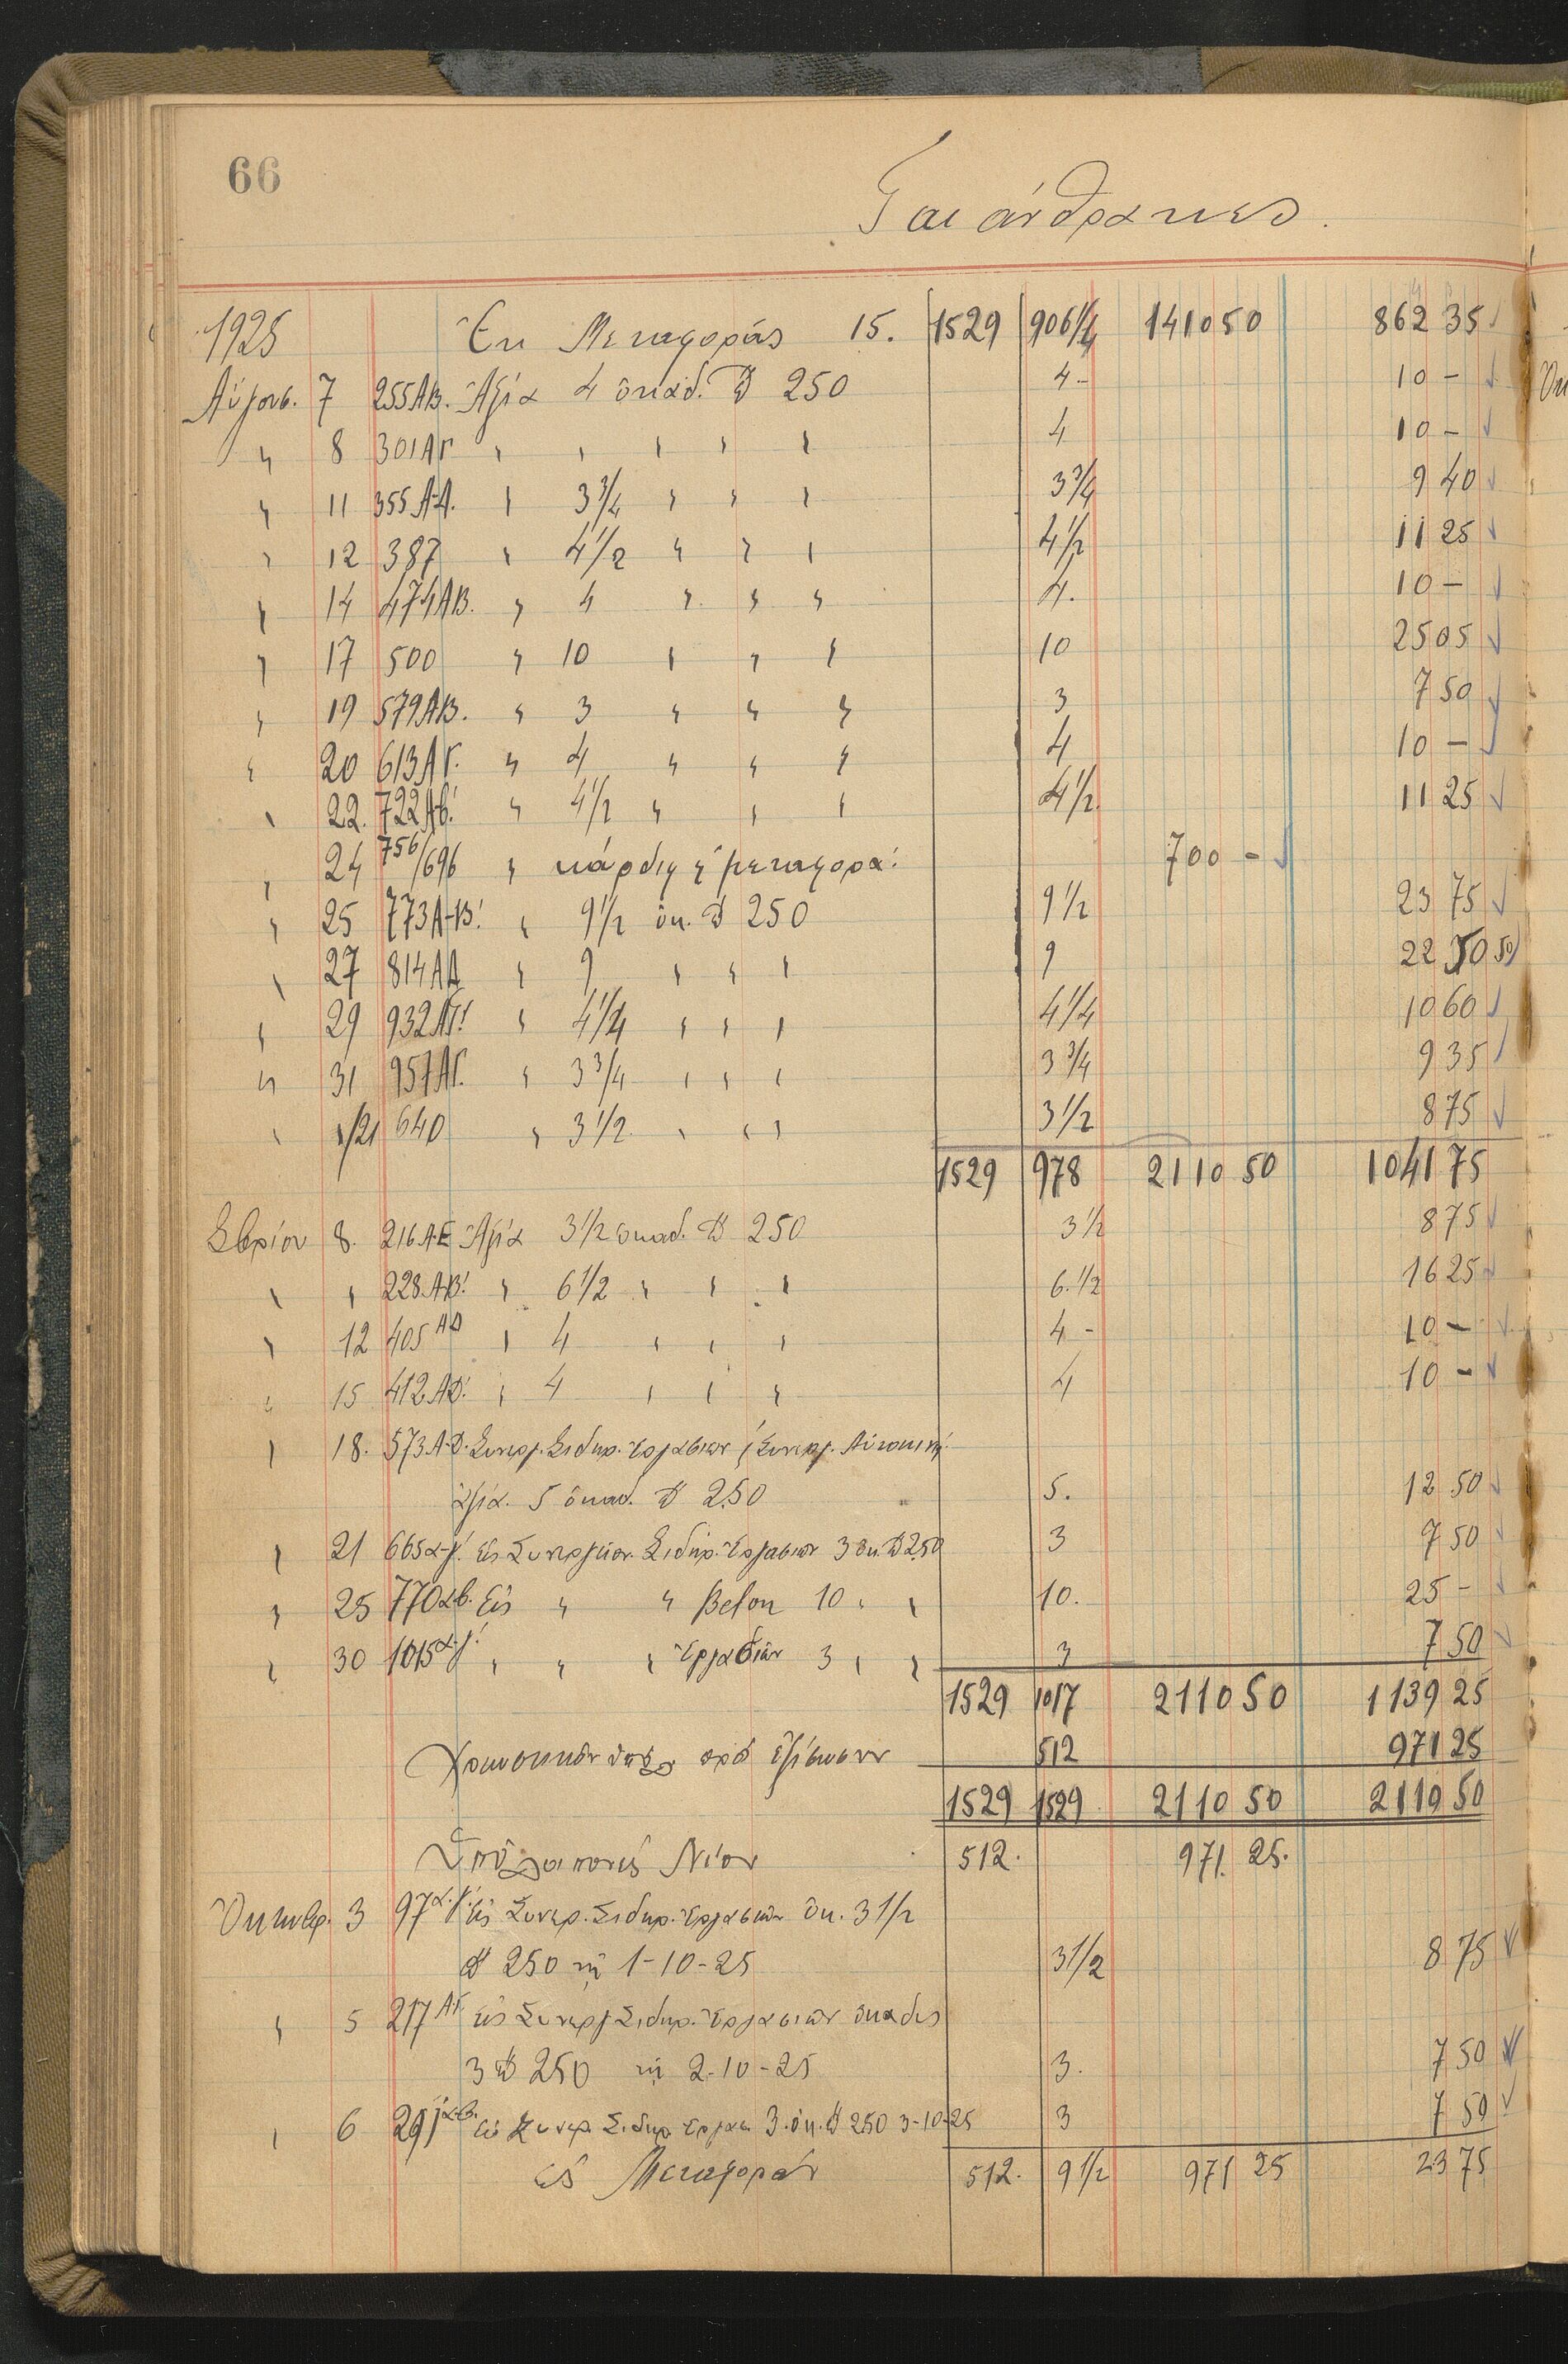 66
Γαιάνθρακες.
1925 Ἐκ Μεταφορᾶς 15. 1529 906 1/4 1410 50 862 35
Αὔγουσ. 7 255 ΑΒ. Ἀξία 4 ὀκάδ. 250 4 - 10 -
" 8 301 ΑΓ " " " " " 4 10 -
" 11 355 Α-Δ. " 3 3/4 " " " 3 3/4 9 40
" 12 387 " 4 1/2 " " " 4 1/2 11 25
" 14 474 ΑΒ. " 4 " " " 4. 10 -
" 17 500 " 10 " " " 10 25 05
" 19 579 ΑΒ. " 3 " " " 3 7 50
" 20 613 ΑΓ. " 4 " " " 4 10 -
" 22. 722 Αβ! " 4 1/2 " " " 4 1/2 11 25
" 24 756/696 " κάρδιφ μεταφορά. 700 -
" 25 773 Α-Β! " 9 1/2 ὀκ. 250 9 1/2 23 75
" 27 814 ΑΔ " 9 " " " 9 22 50 50
" 29 932 ΑΓ! " 4 1/4 " " " 4 1/4 10 60
" 31 957 ΑΓ. " 3 3/4 " " " 3 3/4 9 35
" "/21 640 " 3 1/2 " " " 3 1/2 8 75
1529 978 2110 50 1041 75
Σβρίου 8. 216 Α-Ε Ἀξία 3 1/2 ὀκαδ. 250 3 1/2 8 75
" " 228 Α-Β! " 6 1/2 " " " 6 1/2 16 25
" 12 405 ΑΔ " 4 " " " 4 - 10 -
" 15 412 ΑΔ! " 4 " " " 4 10 -
" 18. 573 Α-Δ. Συνεργ. Σιδηρ. Ἐργασιῶν Συνεργ. Αὐτοκιν.
ἀξία 5 ὀκαδ. 2.50 5. 12 50
" 21 665 α-γ. Εἰς Συνεργεῖον Σιδηρ. Ἐργασιῶν 3 ὀκ. 2.50 3 7 50
" 25 770 αβ. Εἰς " " Beton 10 " " 10. 25 -
" 30 1015 α-γ! " " " Ἐργασιῶν 3 " " 3 7 50
1529 1017 2110 50 1139 25
Χρεωστικὸν ὑπόλ. πρὸς ἐξίσωσιν 512 971 25
1529 1529 2110 50 2110 50
Ὑπόλοιπον εἰς Νέον 512. 971. 25.
Ὀκτωβρ. 3 97 α.γ. Εἰς Συνερ. Σιδηρ. Ἐργασιῶν ὀκ. 3 1/2
250 τῇ 1-10-25 3 1/2 8 75
" 5 217 ΑΓ. Εἰς Συνεργ. Σιδηρ. Ἐργασιῶν ὀκάδες
3 250 τῇ 2-10-25 3. 7 50
" 6 291 α.β. Εἰς Συνερ. Σιδηρ. Ἐργασ. 3 ὀκ. 2.50 3-10-25 3 7 50
Εἰς Μεταφοράν 512. 9 1/2 971 25 23 75